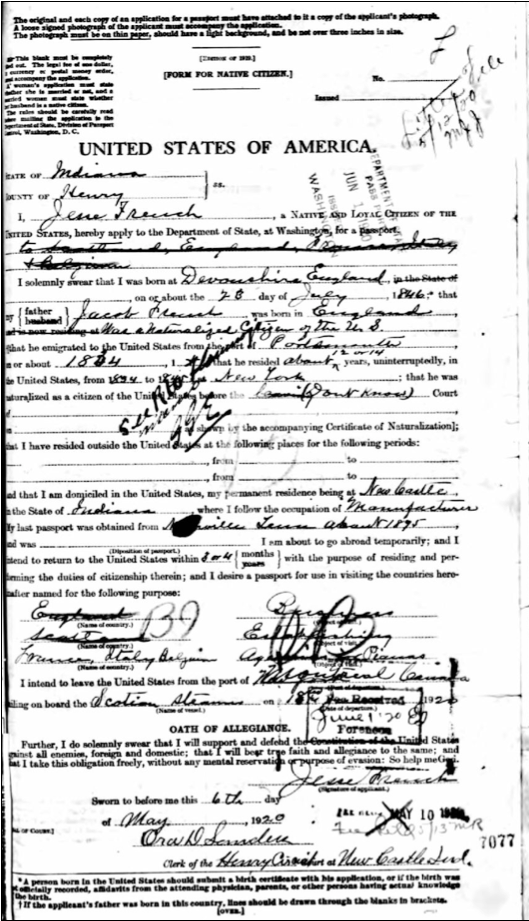 The original and each copy of an application for a passport must have attached to it a copy of the applicant's photograph.
A loose signed photograph of the applicant must accompany the application.
The photograph must be on thin paper, should have a light background, and be not over three inches in size.
This blank must be completely
out. The legal fee of one dollar,
currency or postal money order,
accompany the application.
woman's application must state
whether she is married or not, and a
married woman must state whether
husband is a native citizen.
The rules should be carefully read
before mailing the application to the
Department of State, Division of Passport
Control, Washington, D. C.
[FORM FOR NATIVE CITIZEN.]
No.
Issued
UNITED STATES OF AMERICA.
STATE OF Indiana
COUNTY OF Henry
ss.
I, Jesse French, a NATIVE AND LOYAL CITIZEN OF THE
UNITED STATES, hereby apply to the Department of State, at Washington, for a passport.
to Scotland, England, France, Italy
& Belgium
I solemnly swear that I was born at Devonshire England, in the State of
on or about the 28 day of July, 1846; that
father
husband
Jacob French, was born in England
Was a Naturalized Citizen of the U.S.
that he emigrated to the United States from the port of Portsmouth
or about 1834 that he resided about 12 or 14 years, uninterruptedly, in
the United States, from 1834 to New York; that he was
naturalized as a citizen of the United States before the (Dont Know) Court
as shown by the accompanying Certificate of Naturalization];
that I have resided outside the United States at the following places for the following periods:
, from to
, from to
and that I am domiciled in the United States, my permanent residence being at New Castle
in the State of Indiana, where I follow the occupation of Manufacturer
My last passport was obtained from Nashville Tenn about 1895
and was I am about to go abroad temporarily; and I
(Disposition of passport.)
intend to return to the United States within 3 or 4 months years with the purpose of residing and per-
forming the duties of citizenship therein; and I desire a passport for use in visiting the countries here-
after named for the following purpose:
England Business
(Name of country.)
Scotland Establishing
(Name of country.)
France, Italy Belgium Pianos
(Name of country.)
I intend to leave the United States from the port of Canada
sailing on board the Scotian Steamer on 18 1920
(Name of vessel.) (Date of departure.)
Fee Received
June 1 '20
Forenoon
OATH OF ALLEGIANCE.
Further, I do solemnly swear that I will support and defend the Constitution of the United States
against all enemies, foreign and domestic; that I will bear true faith and allegiance to the same; and
that I take this obligation freely, without any mental reservation or purpose of evasion: So help me God.
Jesse French
(Signature of applicant.)
Sworn to before me this 6th day
of May, 1920
MAY 10 1920
7077
Clerk of the Henry Circuit Court at New Castle Ind.
*A person born in the United States should submit a birth certificate with his application, or if the birth was
officially recorded, affidavits from the attending physician, parents, or other persons having actual knowledge
the birth.
†If the applicant's father was born in this country, lines should be drawn through the blanks in brackets.
[OVER.]